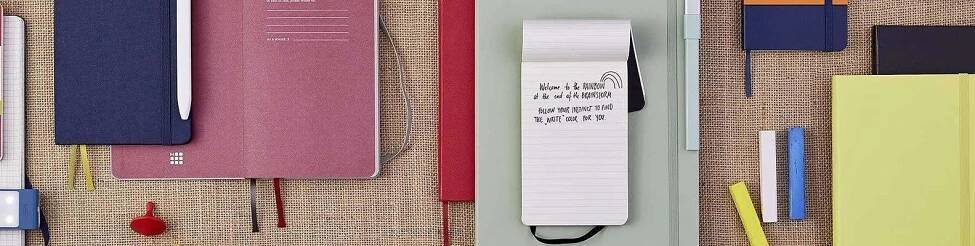 Welcome to the RAINBOW
at the end of the BRAINSTORM
FOLLOW YOUR INSTINCT TO FIND
THE „WRITE" COLOR FOR YOU.